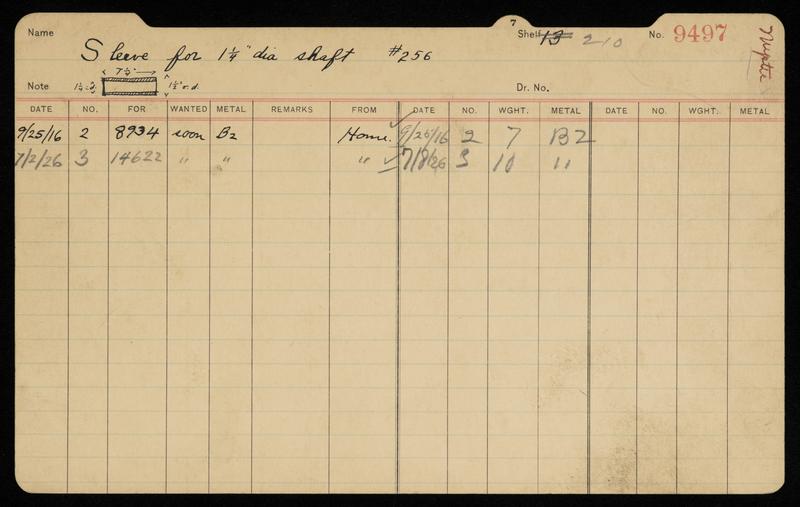 7
Name Shelf 13 210 No. 9497
Sleeve for 1 1/4" dia shaft #256
7 1/2"
Note 1 1/2" o.d. Dr. No.
DATE NO. FOR WANTED METAL REMARKS FROM DATE NO. WGHT. METAL DATE NO. WGHT. METAL
9/25/16 2 8934 soon Bz Home. 9/25/16 2 7 BZ
7/2/26 3 14622 " " " 7/8/26 3 10 "